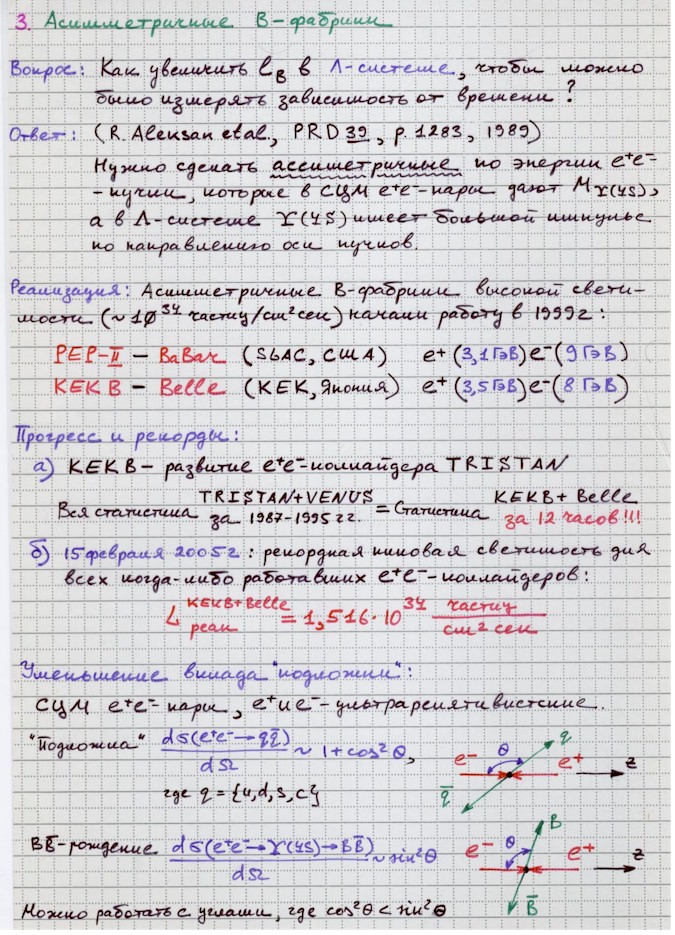 3. Асимметричные B-фабрики
Вопрос: Как увеличить ℓ_B в Л-системе, чтобы можно
было измерять зависимость от времени?
Ответ: (R. Aleksan et al., PRD 39, p. 1283, 1989)
Нужно сделать ассиметричные по энергии e⁺e⁻-
-пучки, которые в СЦМ e⁺e⁻-пары дают M_ϒ(4S),
а в Л-системе ϒ(4S) имеет большой импульс
по направлению оси пучков.
Реализация: Асимметричные B-фабрики высокой свети-
мости (~10³⁴ частиц/см²сек) начали работу в 1999г:
PEP-II – BaBar (SLAC, США) e⁺(3,1ГэВ)e⁻(9ГэВ)
KEKB – Belle (KEK, Япония) e⁺(3,5ГэВ)e⁻(8ГэВ)
Прогресс и рекорды:
а) KEKB – развитие e⁺e⁻-коллайдера TRISTAN
Вся статистика TRISTAN+VENUS за 1987-1995 гг. = Статистика KEKB+Belle за 12 часов!!!
б) 15 февраля 2005г: рекордная пиковая светимость для
всех когда-либо работавших e⁺e⁻-коллайдеров:
L^KEKB+Belle_реал = 1,516·10³⁴ частиц/см²сек
Уменьшение вклада "подложки":
СЦМ e⁺e⁻-пары, e⁺ и e⁻-ультрарелятивистские.
"Подложка" dσ(e⁺e⁻→qq̄)/dΩ ~ 1+cos²θ,
где q = {u,d,s,c}
e⁻ θ q e⁺ z q̄
BB̄-рождение dσ(e⁺e⁻→ϒ(4S)→BB̄)/dΩ ~ sin²θ
e⁻ θ B e⁺ z B̄
Можно работать с углами, где cos²θ < sin²θ